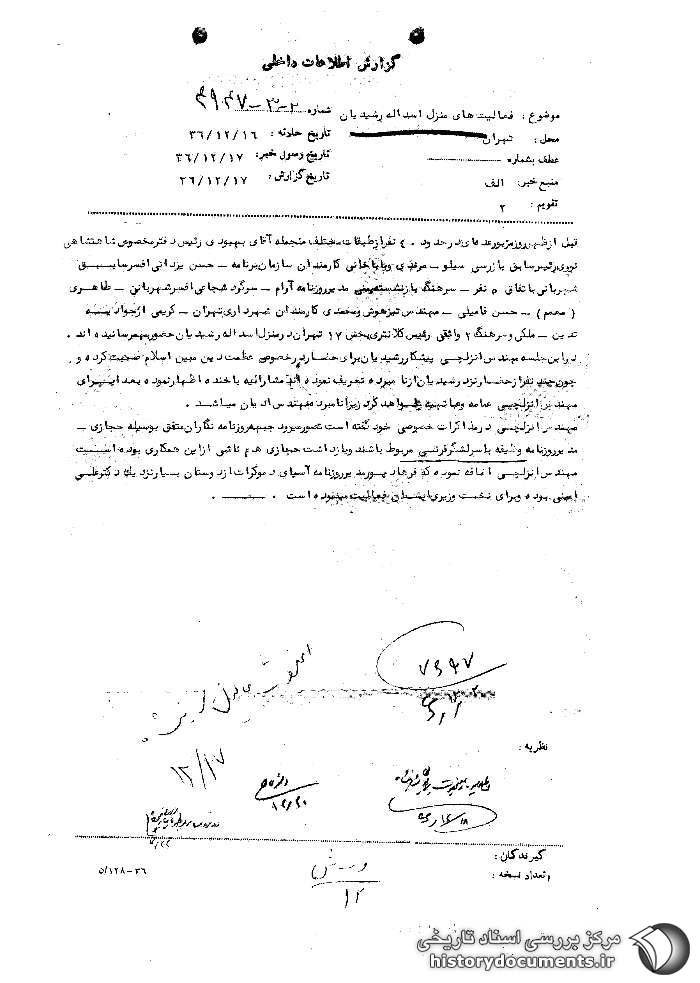 گزارش اطلاعات داخلی
موضوع : فعالیت های منزل اسداله رشیدیان
شماره
محل : تهران
تاریخ حادثه : ۳۶/۱۲/۱۶
عطف بشماره
تاریخ وصول خبر: ۳۶/۱۲/۱۷
منبع خبر: الف
تاریخ گزارش : ۳۶/۱۲/۱۷
تقویم : ۲
قبل از ظهر روز مزبور عده ای در حدود ۴۰ نفر از طبقات مختلف منجمله آقای بهبودی رئیس دفتر مخصوص شاهنشاهی
نوری رئیس سابق بازرسی سیلو - مرندی و باباخانی کارمندان سازمان برنامه - حسن یزدانی افسر سابق
شهربانی باتفاق ۵ نفر - سرهنگ بازنشسته مدیر روزنامه آرام - سرگرد شجاعی افسر شهربانی - طاهری
( معمم ) - حسن فامیلی - مهندس تیزهوش ومحمدی کارمندان شهرداری تهران - کریمی از جواد یه
تدین - ملکی و سرهنگ ۲ واثقی رئیس کلانتری بخش ۱۷ تهران در منزل اسداله رشیدیان حضور بهمرسانیده اند .
در این جلسه مهندس انزلچی پیشکار رشیدیان برای حضار در خصوص عظمت دین مبین اسلام صحبت کرده و
چون چند نفر از حضار نزد رشیدیان از نامبرده تعریف نموده اند مشارالیه با خنده اظهار نموده بعدا برای
مهندس انزلچی عمامه وعبا تهیه خواهد کرد زیرا نامبرده مهندس ادیان میباشد .
مهندس انزلچی در مذاکرات خصوصی خود گفته است تصور میرود جبهه روزنامه نگاران متفق بوسیله حجازی -
مدیر روزنامه وظیفه با سرلشگر قرنی مربوط باشند و بازداشت حجازی هم ناشی از این همکاری بوده است
مهندس انزلچی اضافه نموده که فرهاد پور مدیر روزنامه آسیای دموکرات از دوستان بسیار نزدیک دکتر علی
امینی بوده و برای نخست وزیری ایشان فعالیت مینموده است .
۷۶۹۷
نظریه :
۱۲/۱۷
۱۲/۲۰
گیرندگان :
وتعداد نسخه :
۵/۱۲۸-۳۶
۱۲
مرکز بررسی اسناد تاریخی
historydocuments.ir